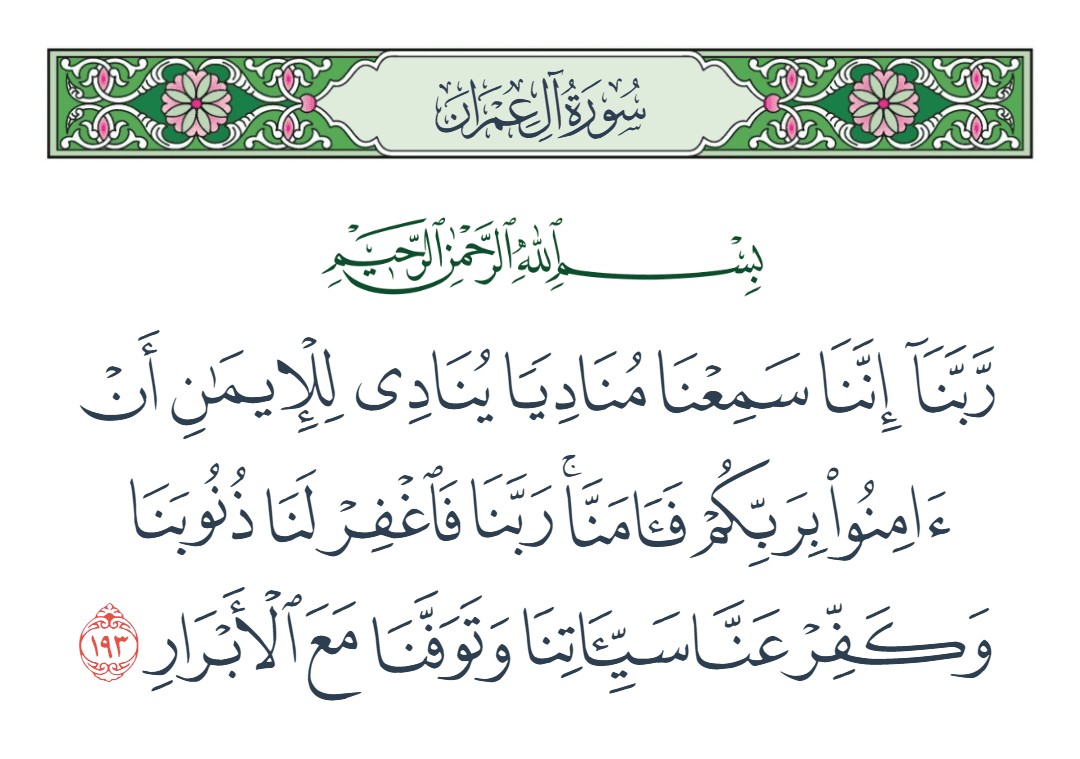 سُورَةُ آلِ عِمْرَانَ
بِسْمِ ٱللَّهِ ٱلرَّحْمَٰنِ ٱلرَّحِيمِ
رَّبَّنَآ إِنَّنَا سَمِعْنَا مُنَادِيًا يُنَادِى لِلْإِيمَٰنِ أَنْ
ءَامِنُوا۟ بِرَبِّكُمْ فَـَٔامَنَّا ۚ رَبَّنَا فَٱغْفِرْ لَنَا ذُنُوبَنَا
وَكَفِّرْ عَنَّا سَيِّـَٔاتِنَا وَتَوَفَّنَا مَعَ ٱلْأَبْرَارِ ١٩٣